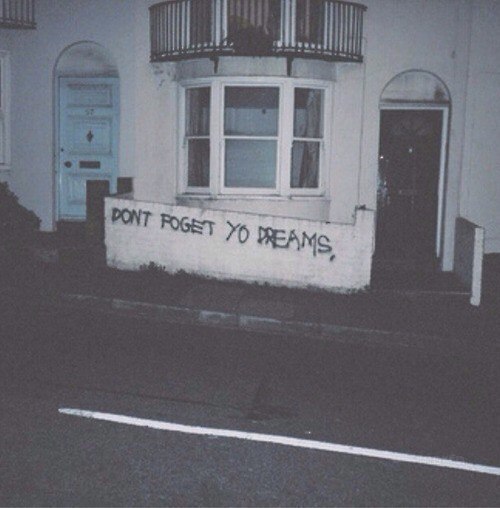 DONT FOGET YO DREAMS.